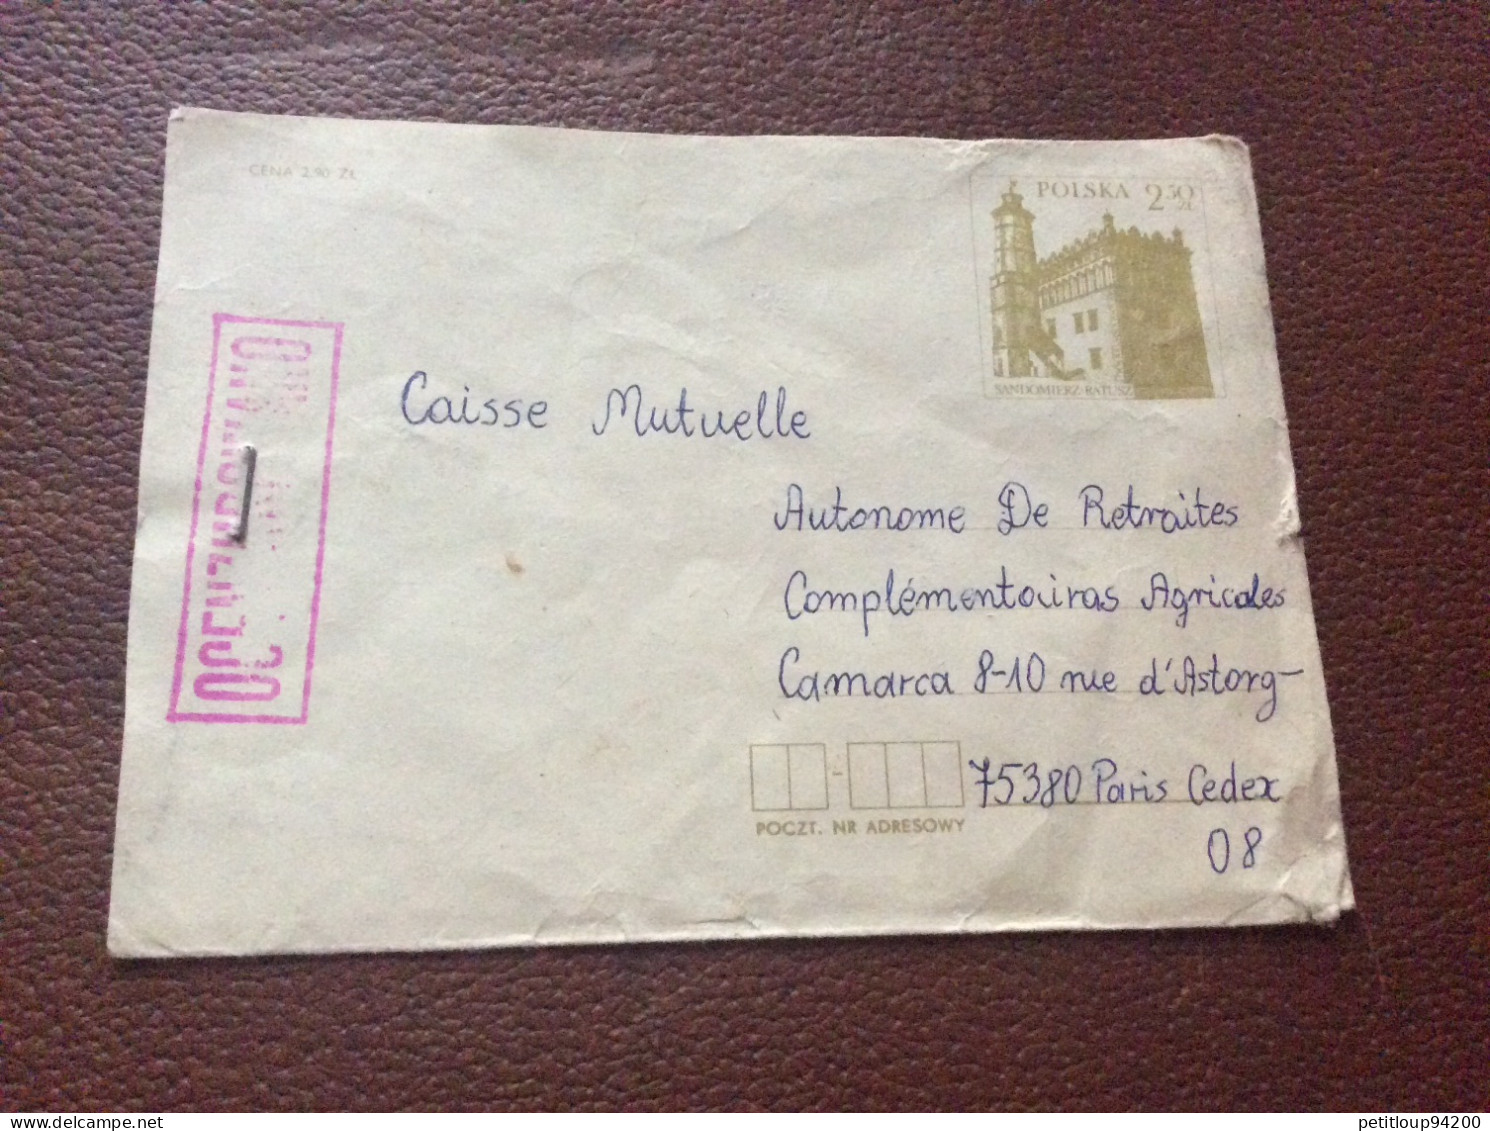 CENA 2,90 ZŁ
POLSKA 2 50 ZŁ
SANDOMIERZ-RATUSZ
OCENZUROWANO
Caisse Mutuelle
Autonome De Retraites
Complémentairas Agricales
Camarca 8-10 rue d'Astorg-
75380 Paris Cedex
08
POCZT. NR ADRESOWY
petitloup94200